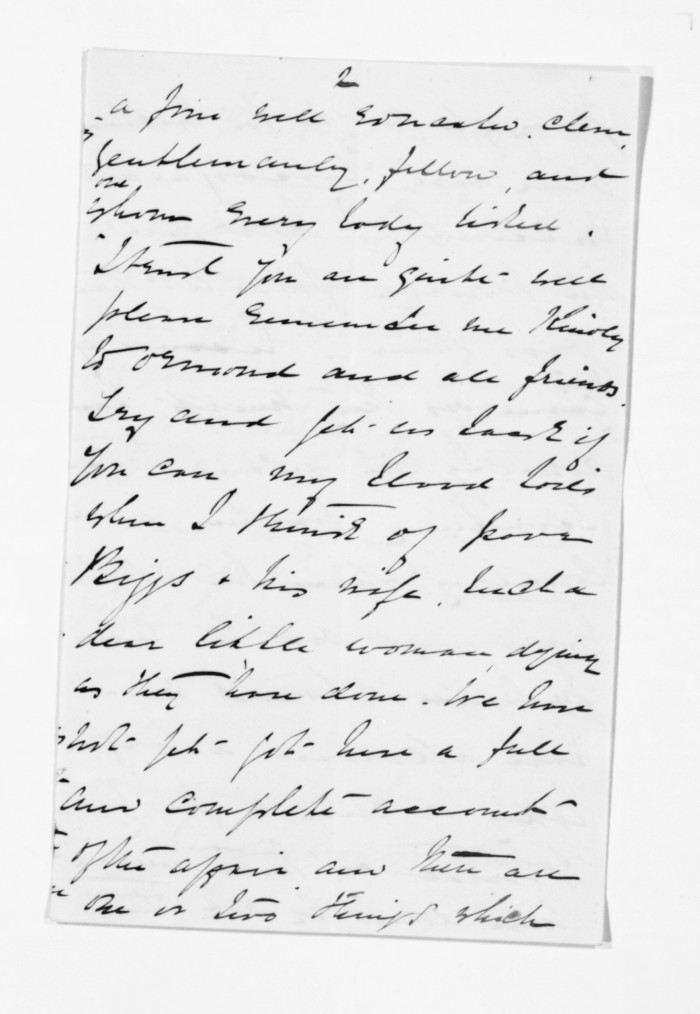 2
a fine well educated, clever,
gentlemanly, fellow, and
one
whom every body liked.
I trust you are quite well
please remember me Kindly
to Ormond and all friends.
Try and get us back if
you can my blood boils
when I think of poor
Biggs & his wife. Such a
dear little woman, dying
as they have done. We have
not yet got here a full
and complete account
of the affair and there are
one or two things which